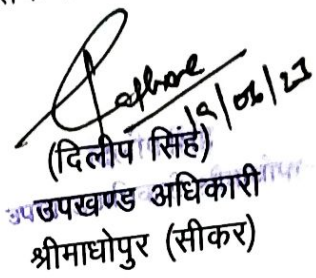 19/06/23
(दिलीप सिंह)
उपखण्ड अधिकारी
श्रीमाधोपुर (सीकर)